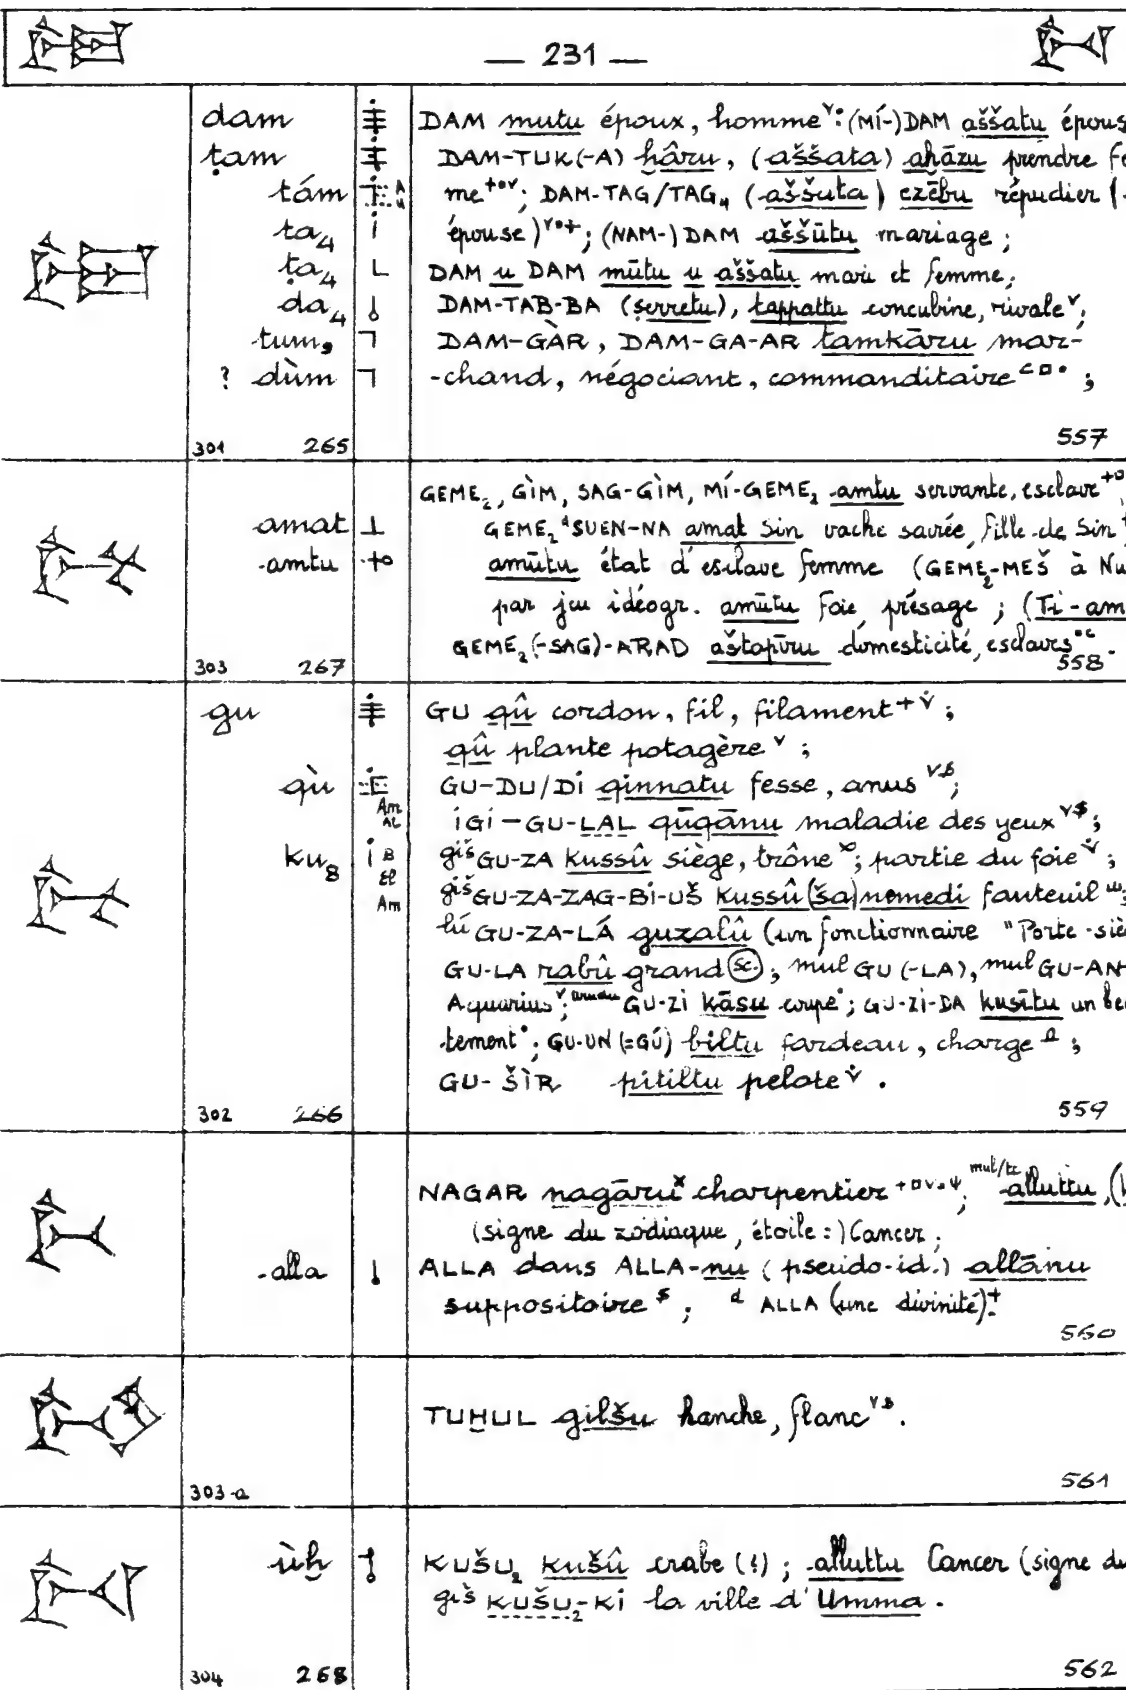 — 231 —
dam
ṭam
tám
ta₄
ṭa₄
da₄
tum₉
? dùm
301 265
DAM mutu époux, homme : (MÍ-)DAM aššatu épous
DAM-TUK(-A) ḫâru, (aššata) aḫāzu prendre fe
me ; DAM-TAG/TAG₄ (aššata) ezēbu répudier (
épouse) ; (NAM-)DAM aššūtu mariage ;
DAM u DAM mūtu u aššatu mari et femme ;
DAM-TAB-BA (ṣerretu), tappattu concubine, rivale ;
DAM-GÀR, DAM-GA-AR tamkāru mar-
-chand, négociant, commanditaire ;
557
amat
amtu
303 267
GEME₂, GÌM, SAG-GÌM, MÍ-GEME₂ amtu servante, esclave
GEME₂ ᵈSUEN-NA amat Sin vache sacrée, fille de Sin
amūtu état d'esclave femme (GEME₂-MEŠ à Nu
par jeu idéogr. amūtu foie, présage ; (Ti-am
GEME₂(-SAG)-ARAD aštapīru domesticité, esclaves .
558
gu
qù
Am
AL
ku₈
B
El
Am
302 266
GU qû cordon, fil, filament ;
qû plante potagère ;
GU-DU/DI qinnatu fesse, anus ;
IGI-GU-LAL qūqānu maladie des yeux ;
giš GU-ZA kussû siège, trône ; partie du foie ;
giš GU-ZA-ZAG-BI-UŠ kussû (ša) nemedi fauteuil ;
lú GU-ZA-LÁ guzalû (un fonctionnaire "Porte-siè
GU-LA rabû grand (Sc.) ; mul GU(-LA), mul GU-AN-
Aquarius ; urudu GU-ZI kāsu coupe ; GU-ZI-DA kusītu un
tement ; GU-UN (=GÚ) biltu fardeau, charge ;
GU-ŠÌR pitiltu pelote .
559
alla
NAGAR nagāru charpentier ; mul/te alluttu,
(signe du zodiaque, étoile :) Cancer ;
ALLA dans ALLA-nu (pseudo-id.) allānu
suppositoire ; ᵈ ALLA (une divinité).
560
303-a
TUḪUL gilšu hanche, flanc .
561
ùḫ
304 268
KUŠU₂ kušû crabe (?) ; alluttu Cancer (signe du
giš KUŠU₂-KI la ville d'Umma .
562